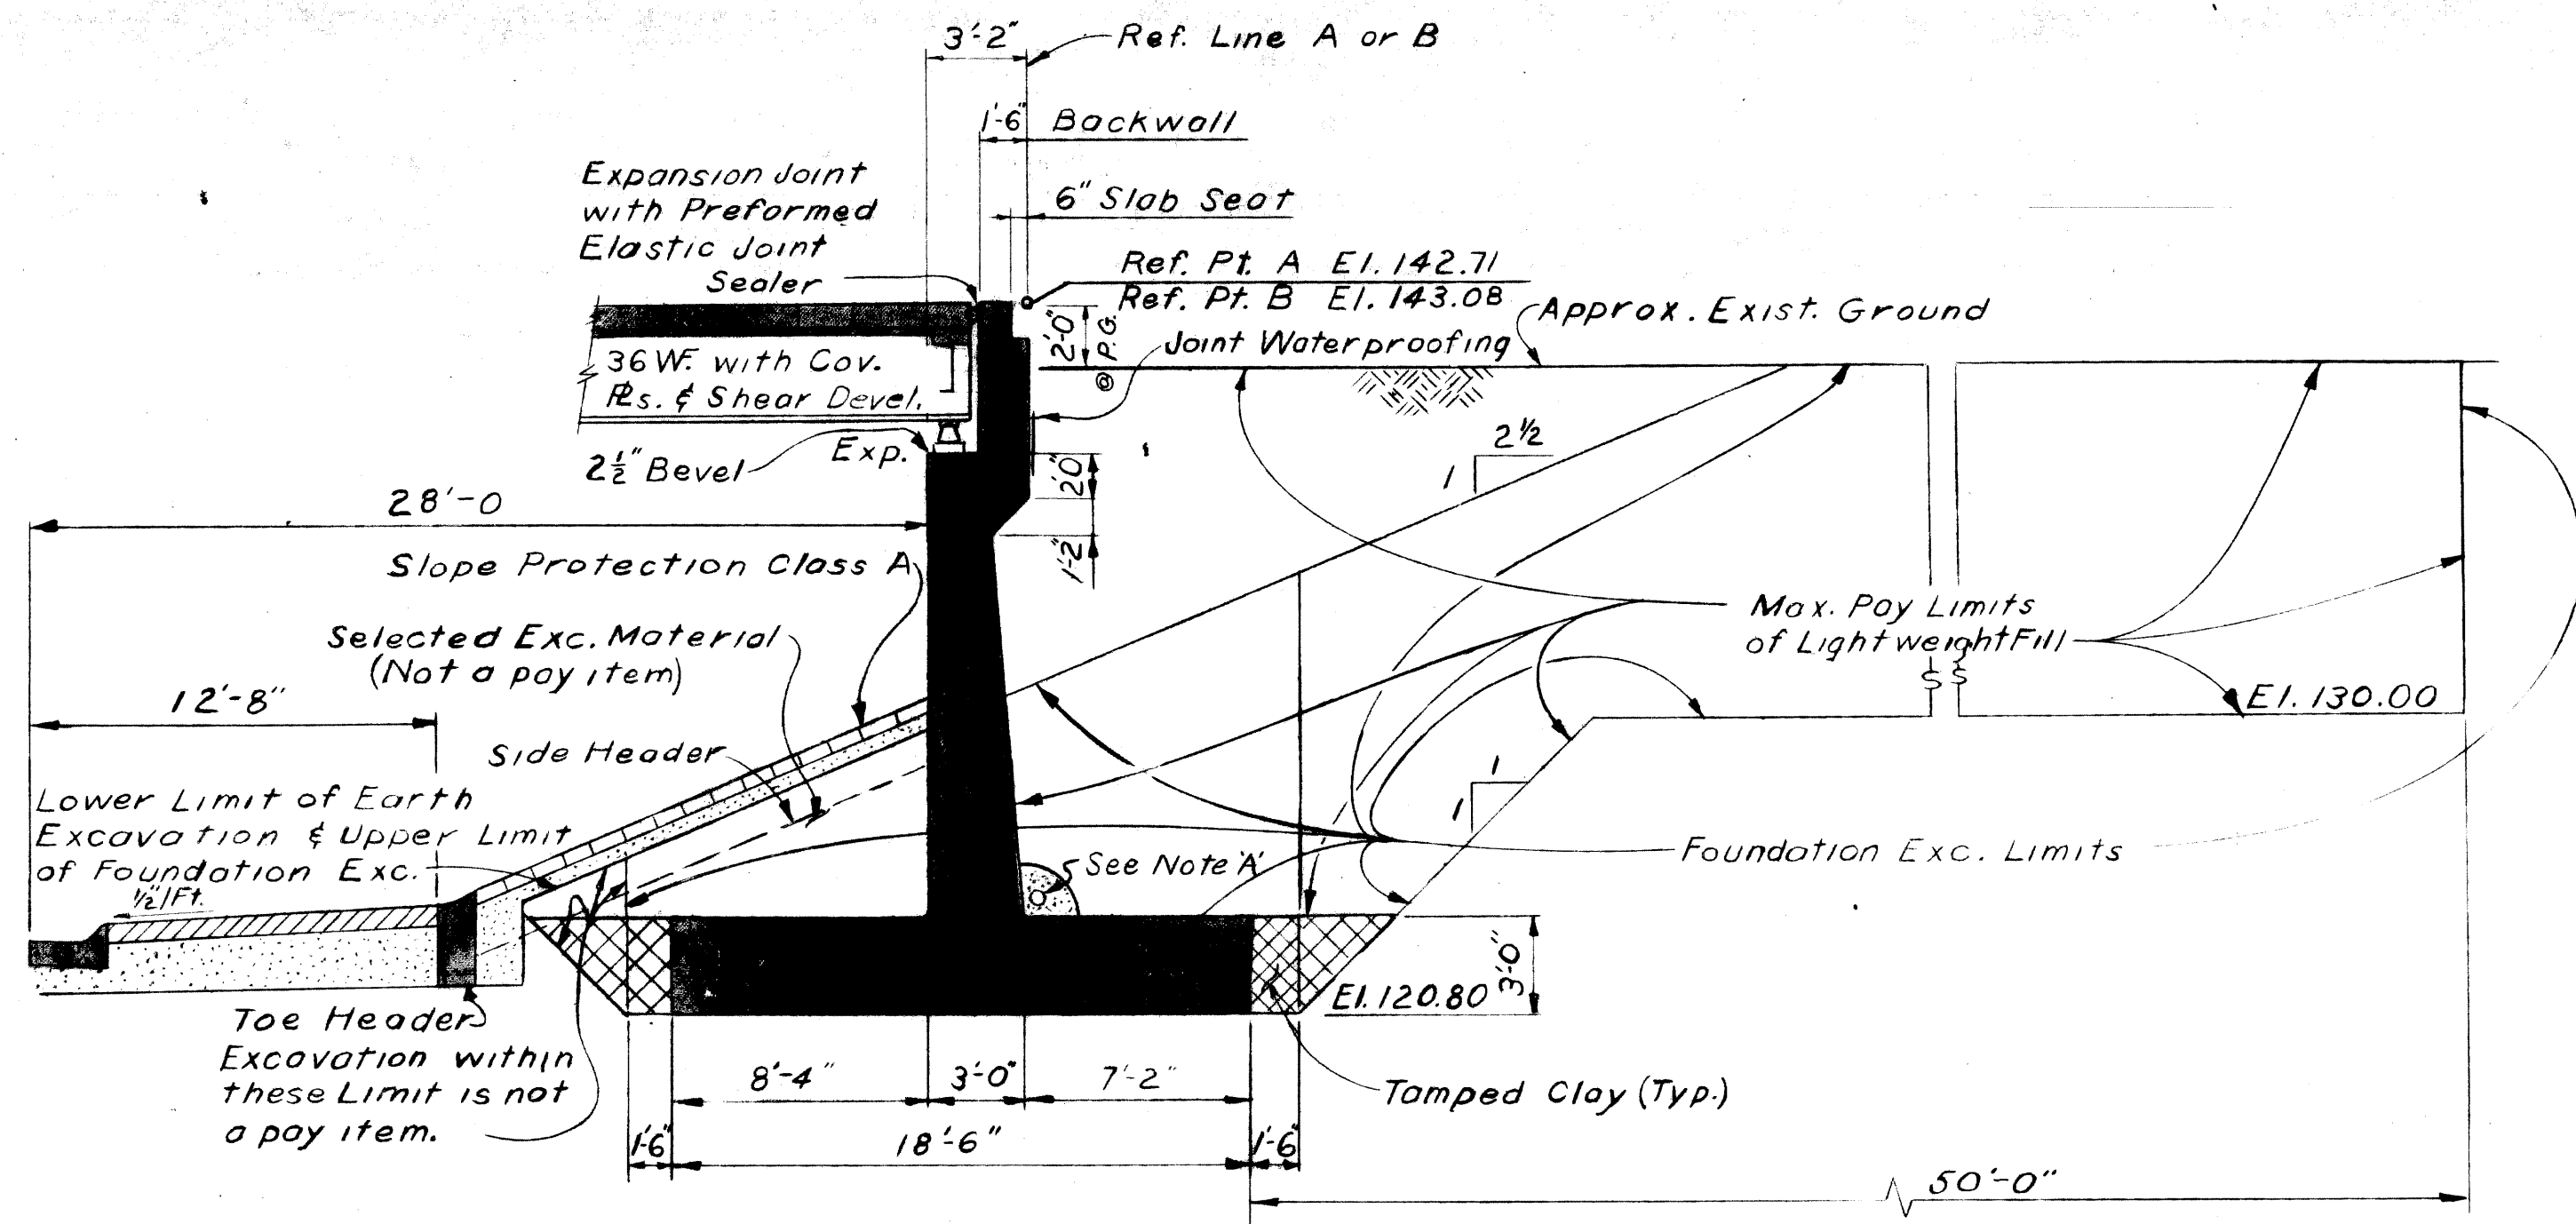 3'-2"
Ref. Line A or B
1'-6" Backwall
Expansion Joint
with Preformed
Elastic Joint
Sealer
6" Slab Seat
Ref. Pt. A El. 142.71
Ref. Pt. B El. 143.08
Approx. Exist. Ground
2'-0"
@ P.G.
Joint Waterproofing
36 WF. with Cov.
PLs. & Shear Devel.
2½" Bevel
Exp.
2'0"
1'-2"
2½
1
28'-0
Slope Protection Class A
Selected Exc. Material
(Not a pay item)
12'-8"
Side Header
Max. Pay Limits
of Lightweight Fill
El. 130.00
Lower Limit of Earth
Excavation & Upper Limit
of Foundation Exc.
½"/Ft.
1
1
See Note 'A'
Foundation Exc. Limits
El. 120.80
3'-0"
Toe Header
Excavation within
these Limit is not
a pay item.
8'-4"
3'-0"
7'-2"
Tamped Clay (Typ.)
1'-6"
18'-6"
1'-6"
50'-0"